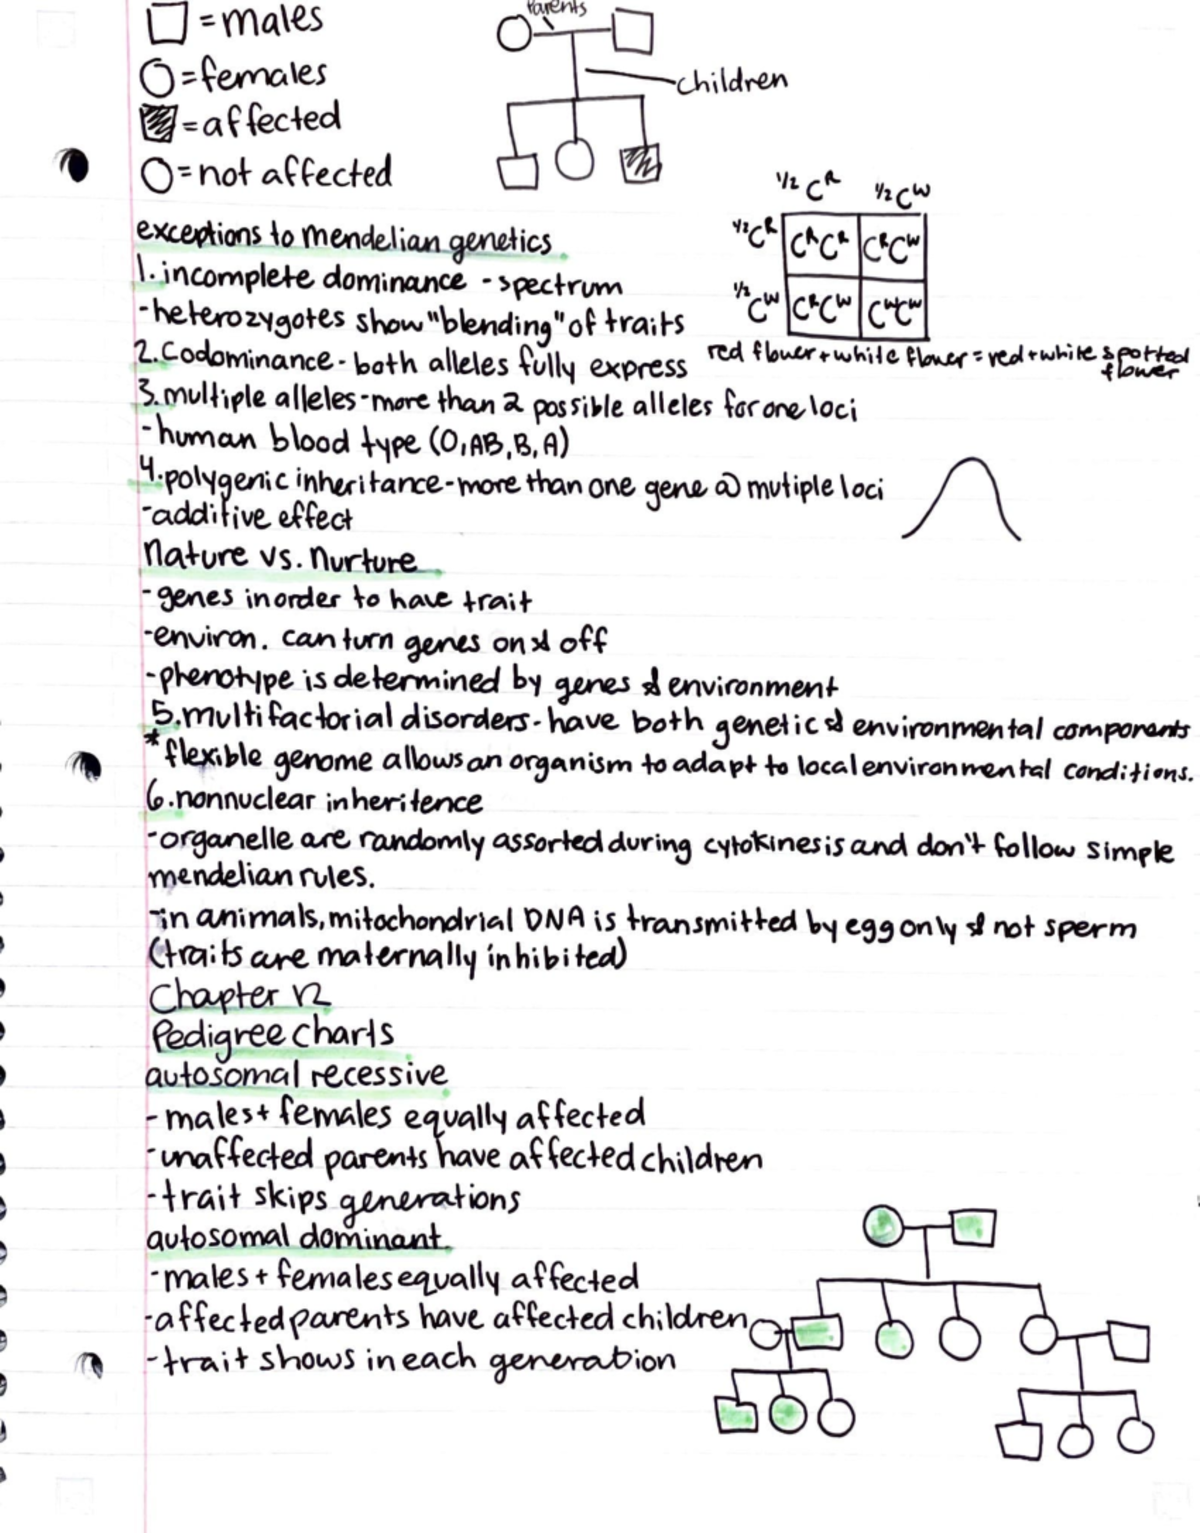 □ = males
Parents
O = females
children
= affected
O = not affected
1/2 C^R 1/2 C^W
1/2 C^R C^R C^R C^R C^W
1/2 C^W C^R C^W C^W C^W
red flower + white flower = red + white spotted flower
exceptions to mendelian genetics
1. incomplete dominance - spectrum
- heterozygotes show "blending" of traits
2. Codominance - both alleles fully express
3. multiple alleles - more than 2 possible alleles for one loci
- human blood type (O, AB, B, A)
4. polygenic inheritance - more than one gene @ mutiple loci
- additive effect
Nature vs. Nurture
- genes in order to have trait
- environ. can turn genes on & off
- phenotype is determined by genes & environment
5. multifactorial disorders - have both genetic & environmental components
* flexible genome allows an organism to adapt to local environmental conditions.
6. nonnuclear inheritence
- organelle are randomly assorted during cytokinesis and don't follow simple
mendelian rules.
- in animals, mitochondrial DNA is transmitted by egg only & not sperm
(traits are maternally inhibited)
Chapter 12
Pedigree Charts
autosomal recessive
- males + females equally affected
- unaffected parents have affected children
- trait skips generations
autosomal dominant
- males + females equally affected
- affected parents have affected children
- trait shows in each generation